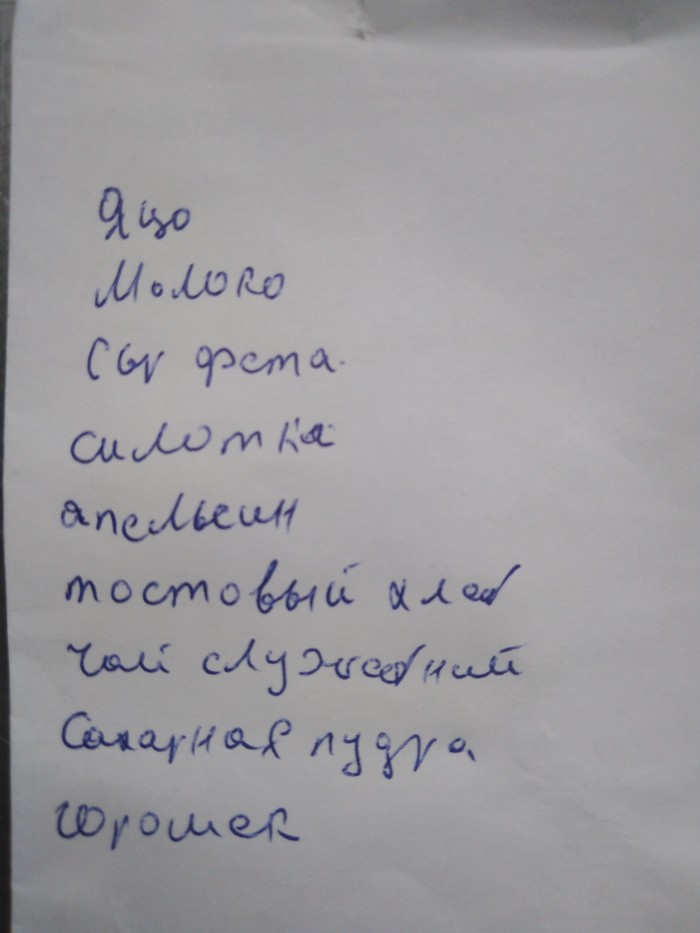 Яцо
Молоко
Сыр фета
силотка
апельсин
тостовый хлеб
чай служебний
Сахарная пудра
горошек